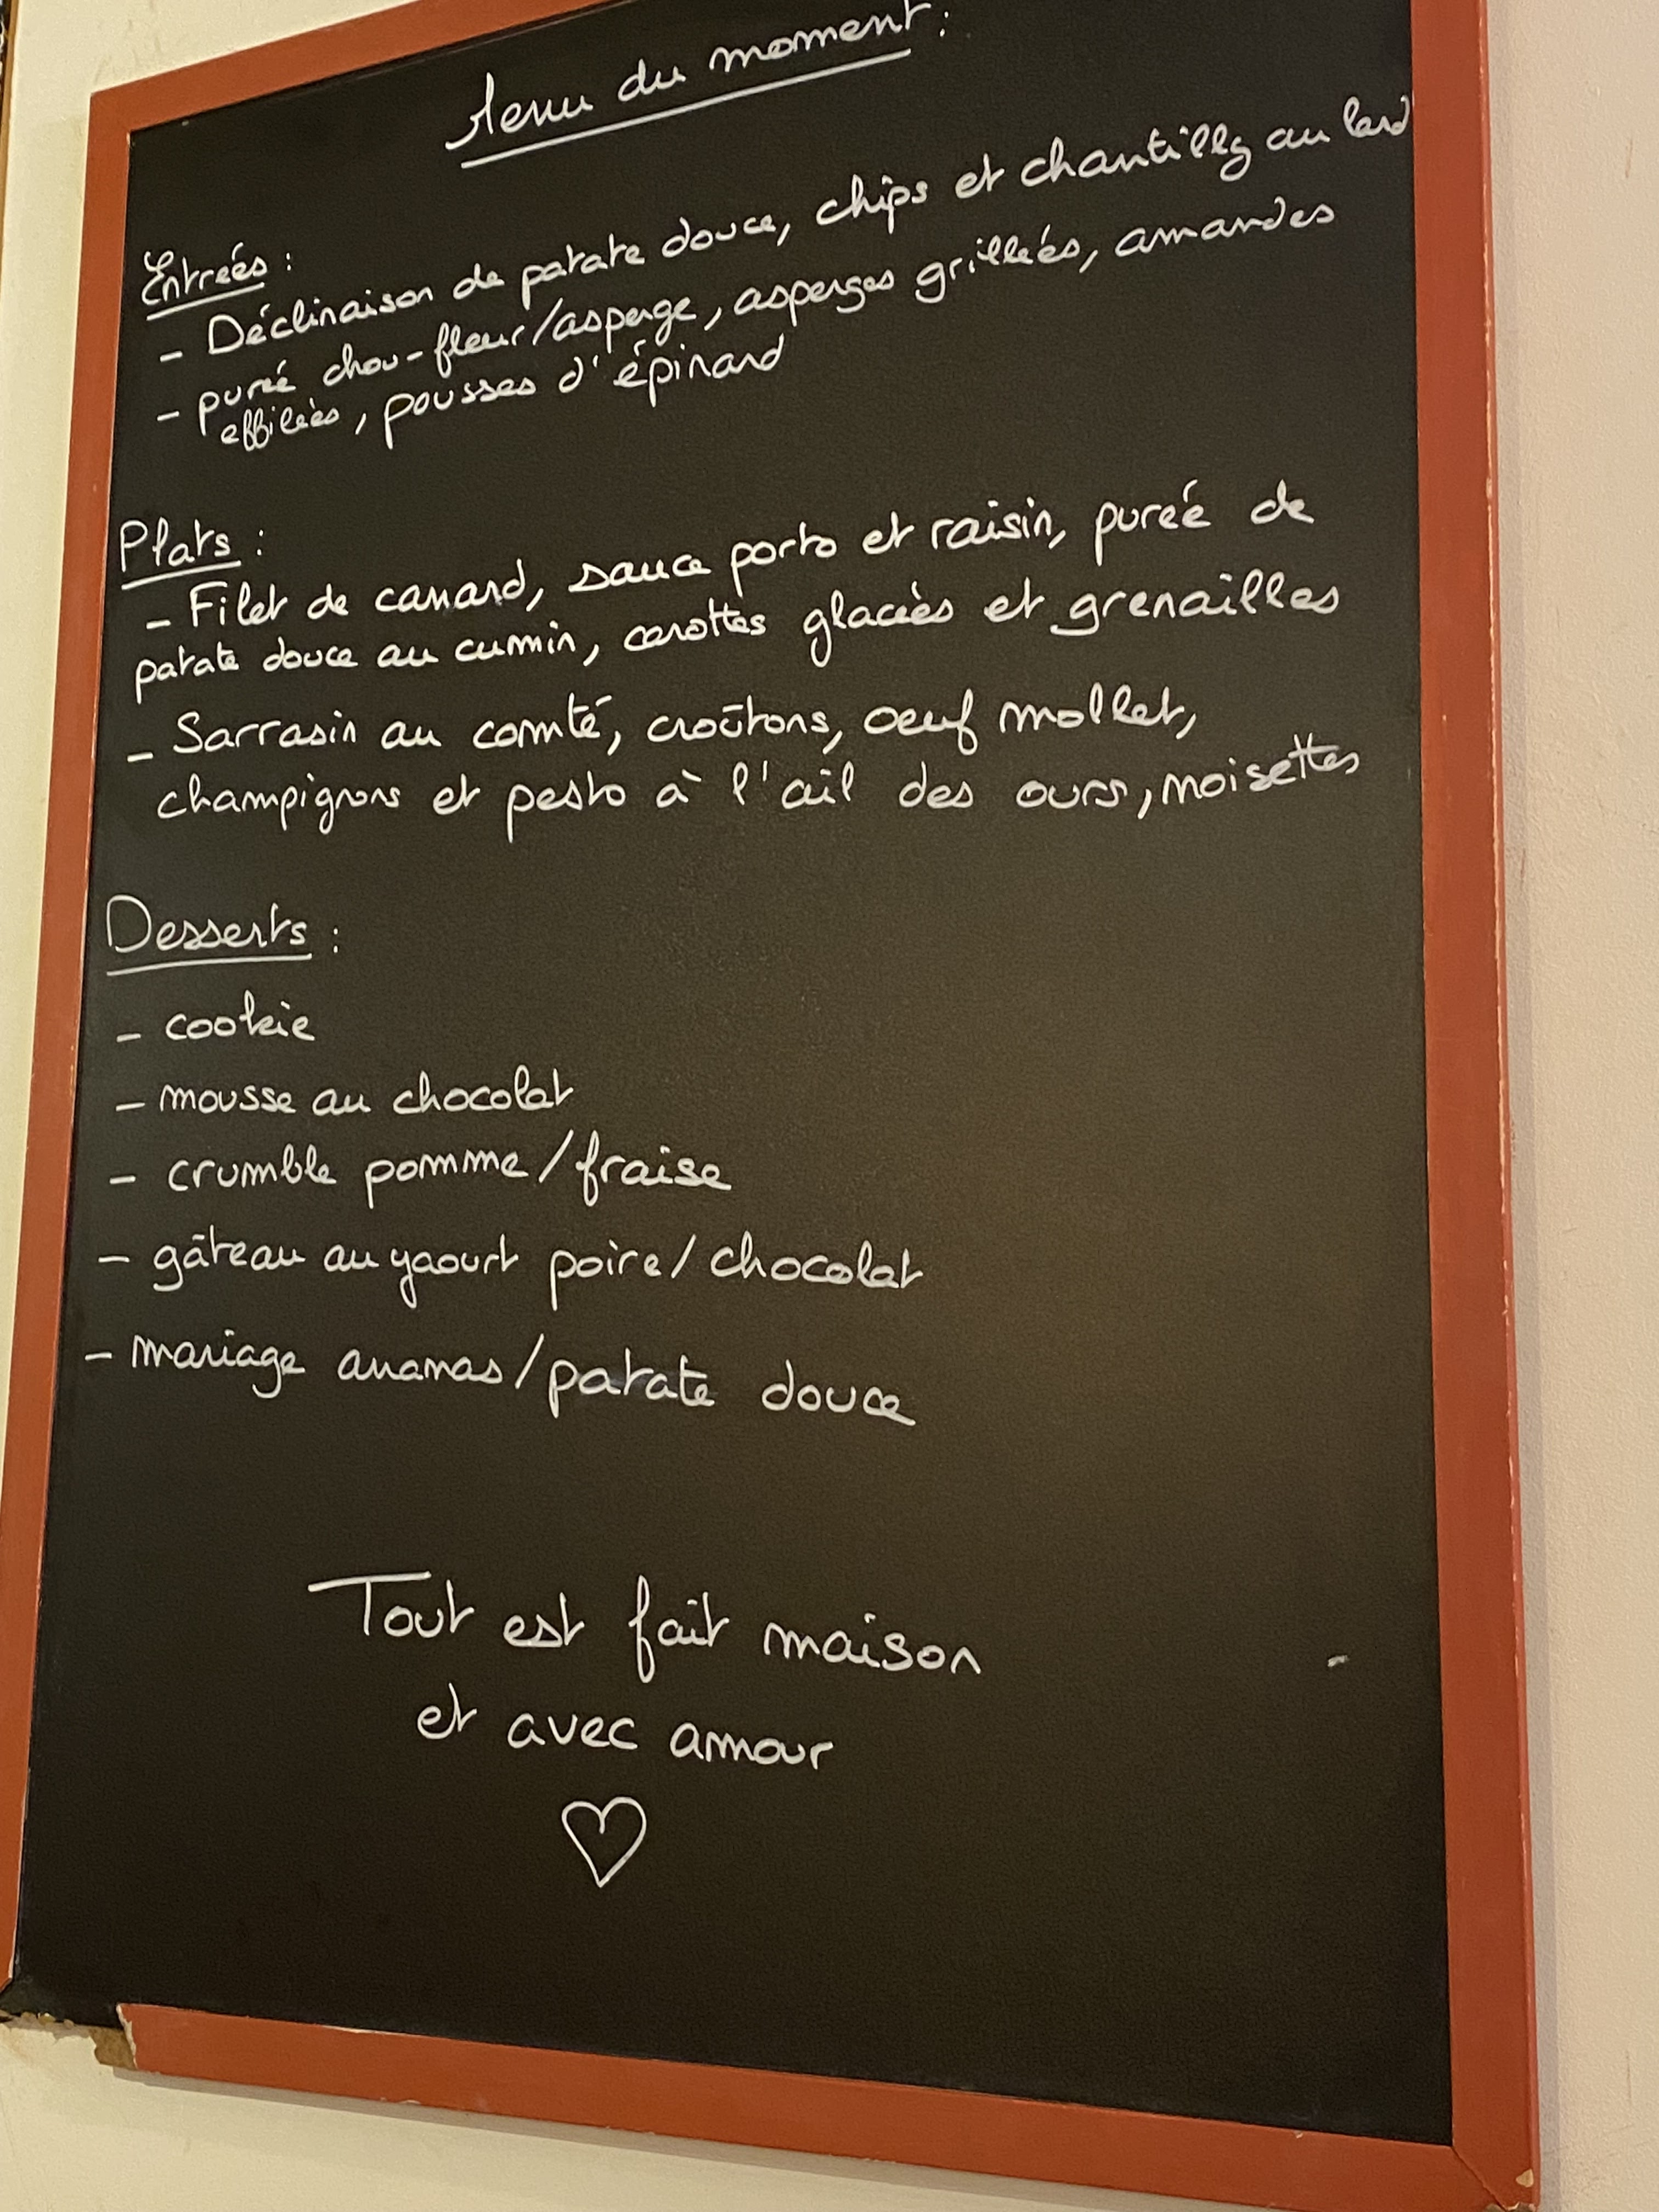 Menu du moment :
Entrées :
- Déclinaison de patate douce, chips et chantilly au lard
- purée chou-fleur/asperge, asperges grillées, amandes
effilées, pousses d'épinard
Plats :
- Filet de canard, sauce porto et raisin, purée de
patate douce au cumin, carottes glacées et grenailles
- Sarrasin au comté, croûtons, oeuf mollet,
champignons et pesto à l'ail des ours, noisettes
Desserts :
- cookie
- mousse au chocolat
- crumble pomme/fraise
- gâteau au yaourt poire/chocolat
- mariage ananas/patate douce
Tout est fait maison
et avec amour